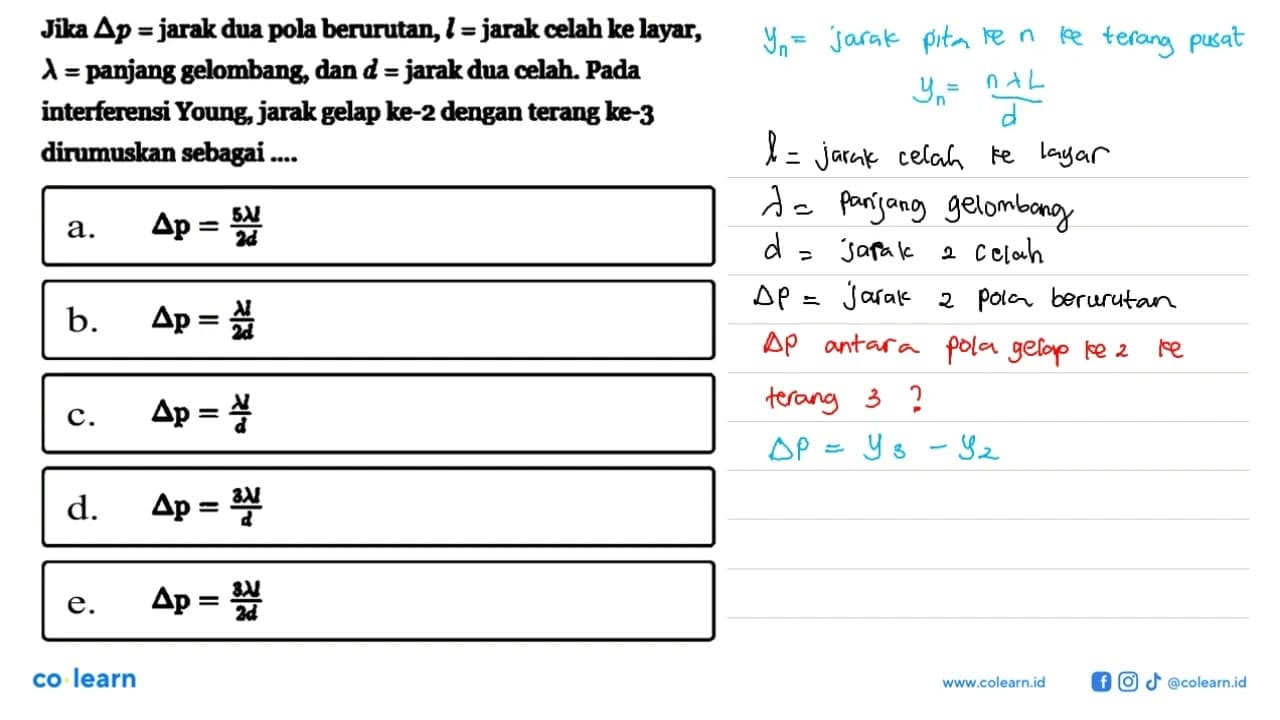 Jika Δp = jarak dua pola berurutan, l = jarak celah ke layar,
λ = panjang gelombang, dan d = jarak dua celah. Pada
interferensi Young, jarak gelap ke-2 dengan terang ke-3
dirumuskan sebagai ....
a. Δp = 5λl/2d
b. Δp = λl/2d
c. Δp = λl/d
d. Δp = 3λl/d
e. Δp = 3λl/2d
yₙ = jarak pita ke n ke terang pusat
yₙ = nλL/d
l = jarak celah ke layar
λ = panjang gelombang
d = jarak 2 celah
Δp = jarak 2 pola berurutan
Δp antara pola gelap ke 2 ke
terang 3 ?
Δp = y₃ - y₂
co learn
www.colearn.id
@colearn.id